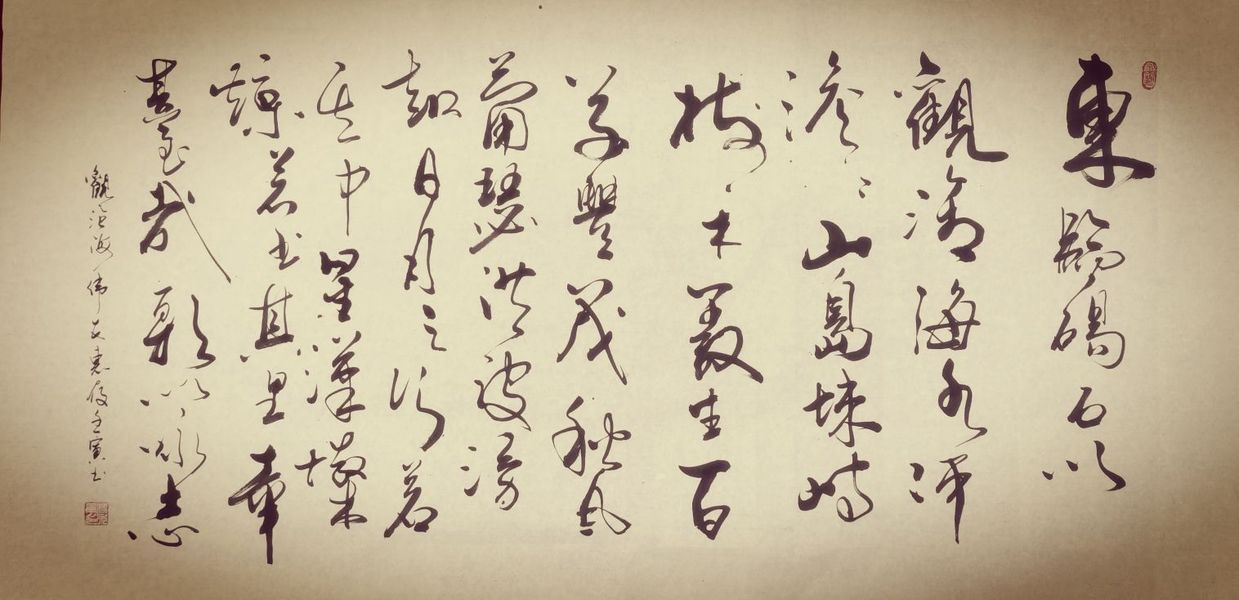 東臨碣石以
觀滄海水何
澹〻山島竦峙
樹木叢生百
草豐茂秋風
蕭瑟洪波湧
起日月之行若
其中星漢燦
爛若出其里幸
甚至哉歌以詠志
觀滄海 壬寅书